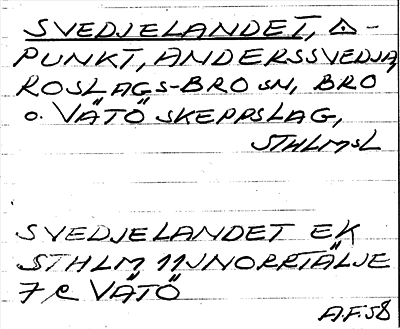 SVEDJELANDET, △-
PUNKT, ANDERSSVEDJA,
ROSLAGS-BRO SN, BRO
o. VÄTÖ SKEPPSLAG,
STHLMSL
SVEDJELANDET EK
STHLM 11J NORRTÄLJE
7 e VÄTÖ
A.F. 58